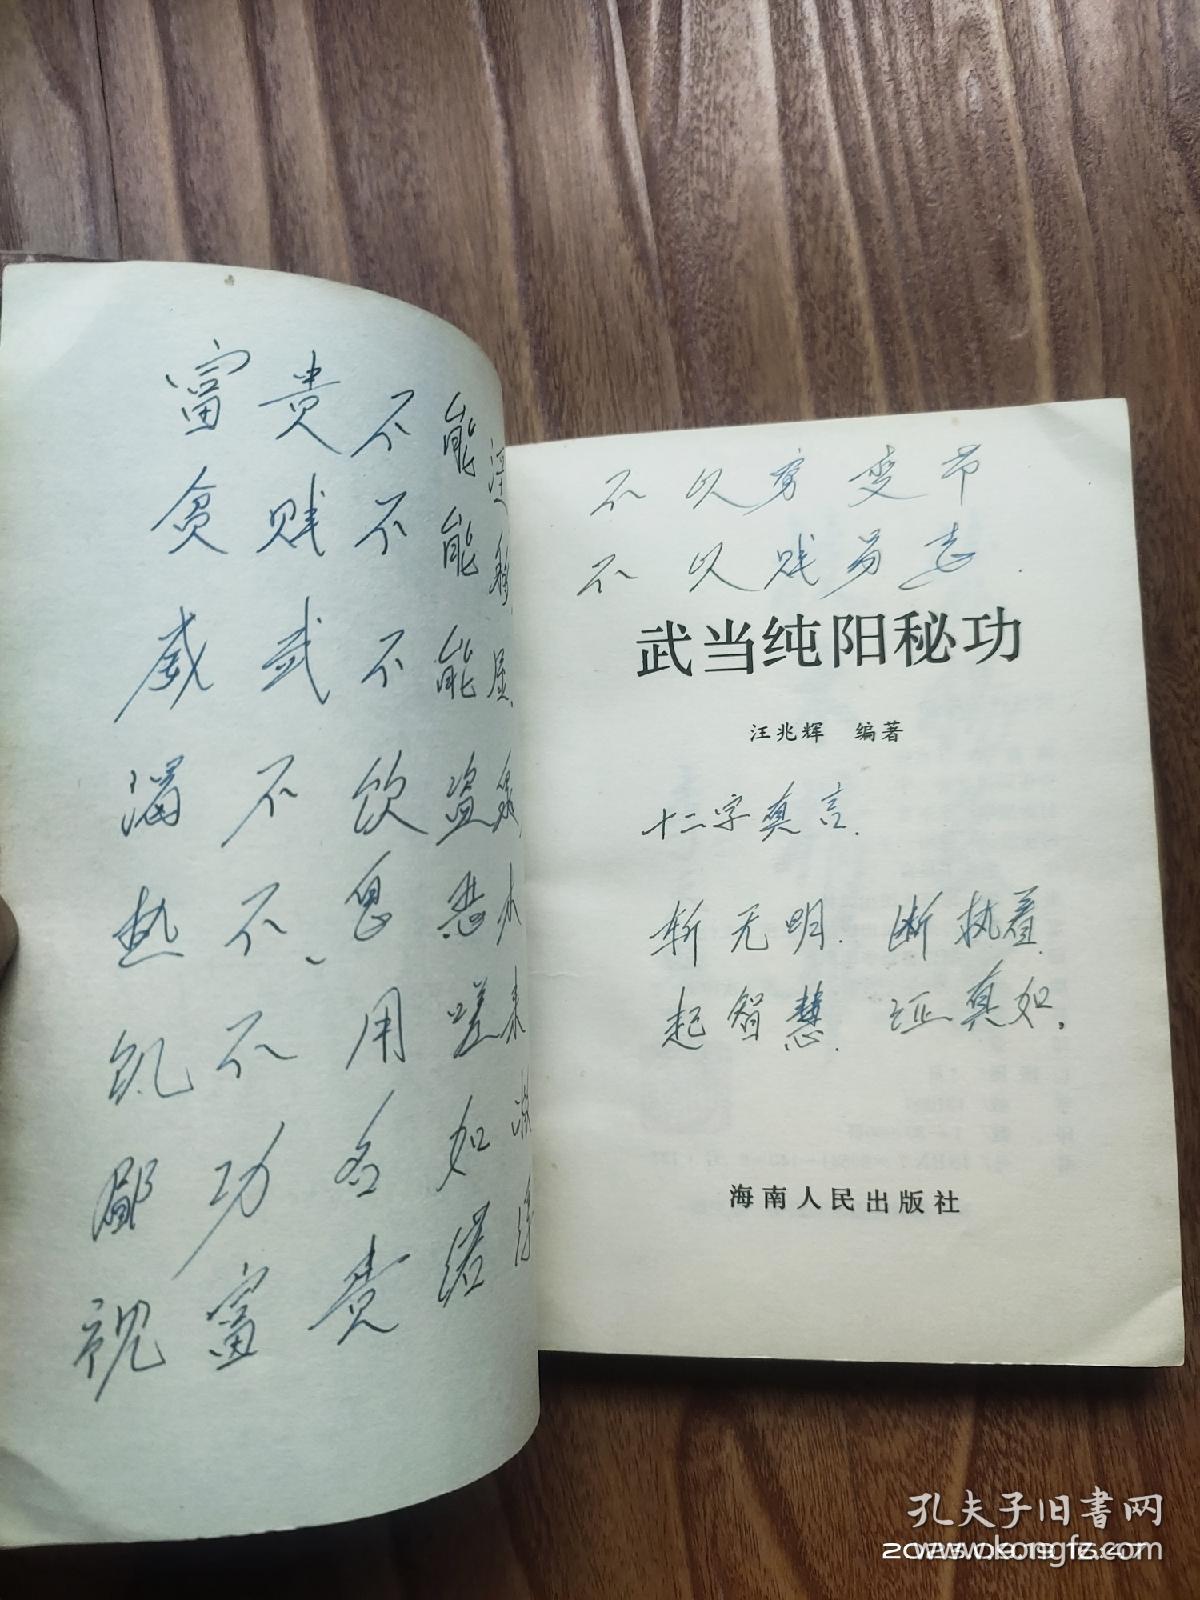 富贵不能淫
贪贱不能移
威武不能屈
渴不饮盗泉水
热不息恶木
饥不用嗟来
鄙功名如
视富贵如
不以穷变节
不以贱易志
武当纯阳秘功
汪兆辉 编著
十二字真言
斩无明 断执着
起智慧 证真如
海南人民出版社
孔夫子旧书网
www.kongfz.com